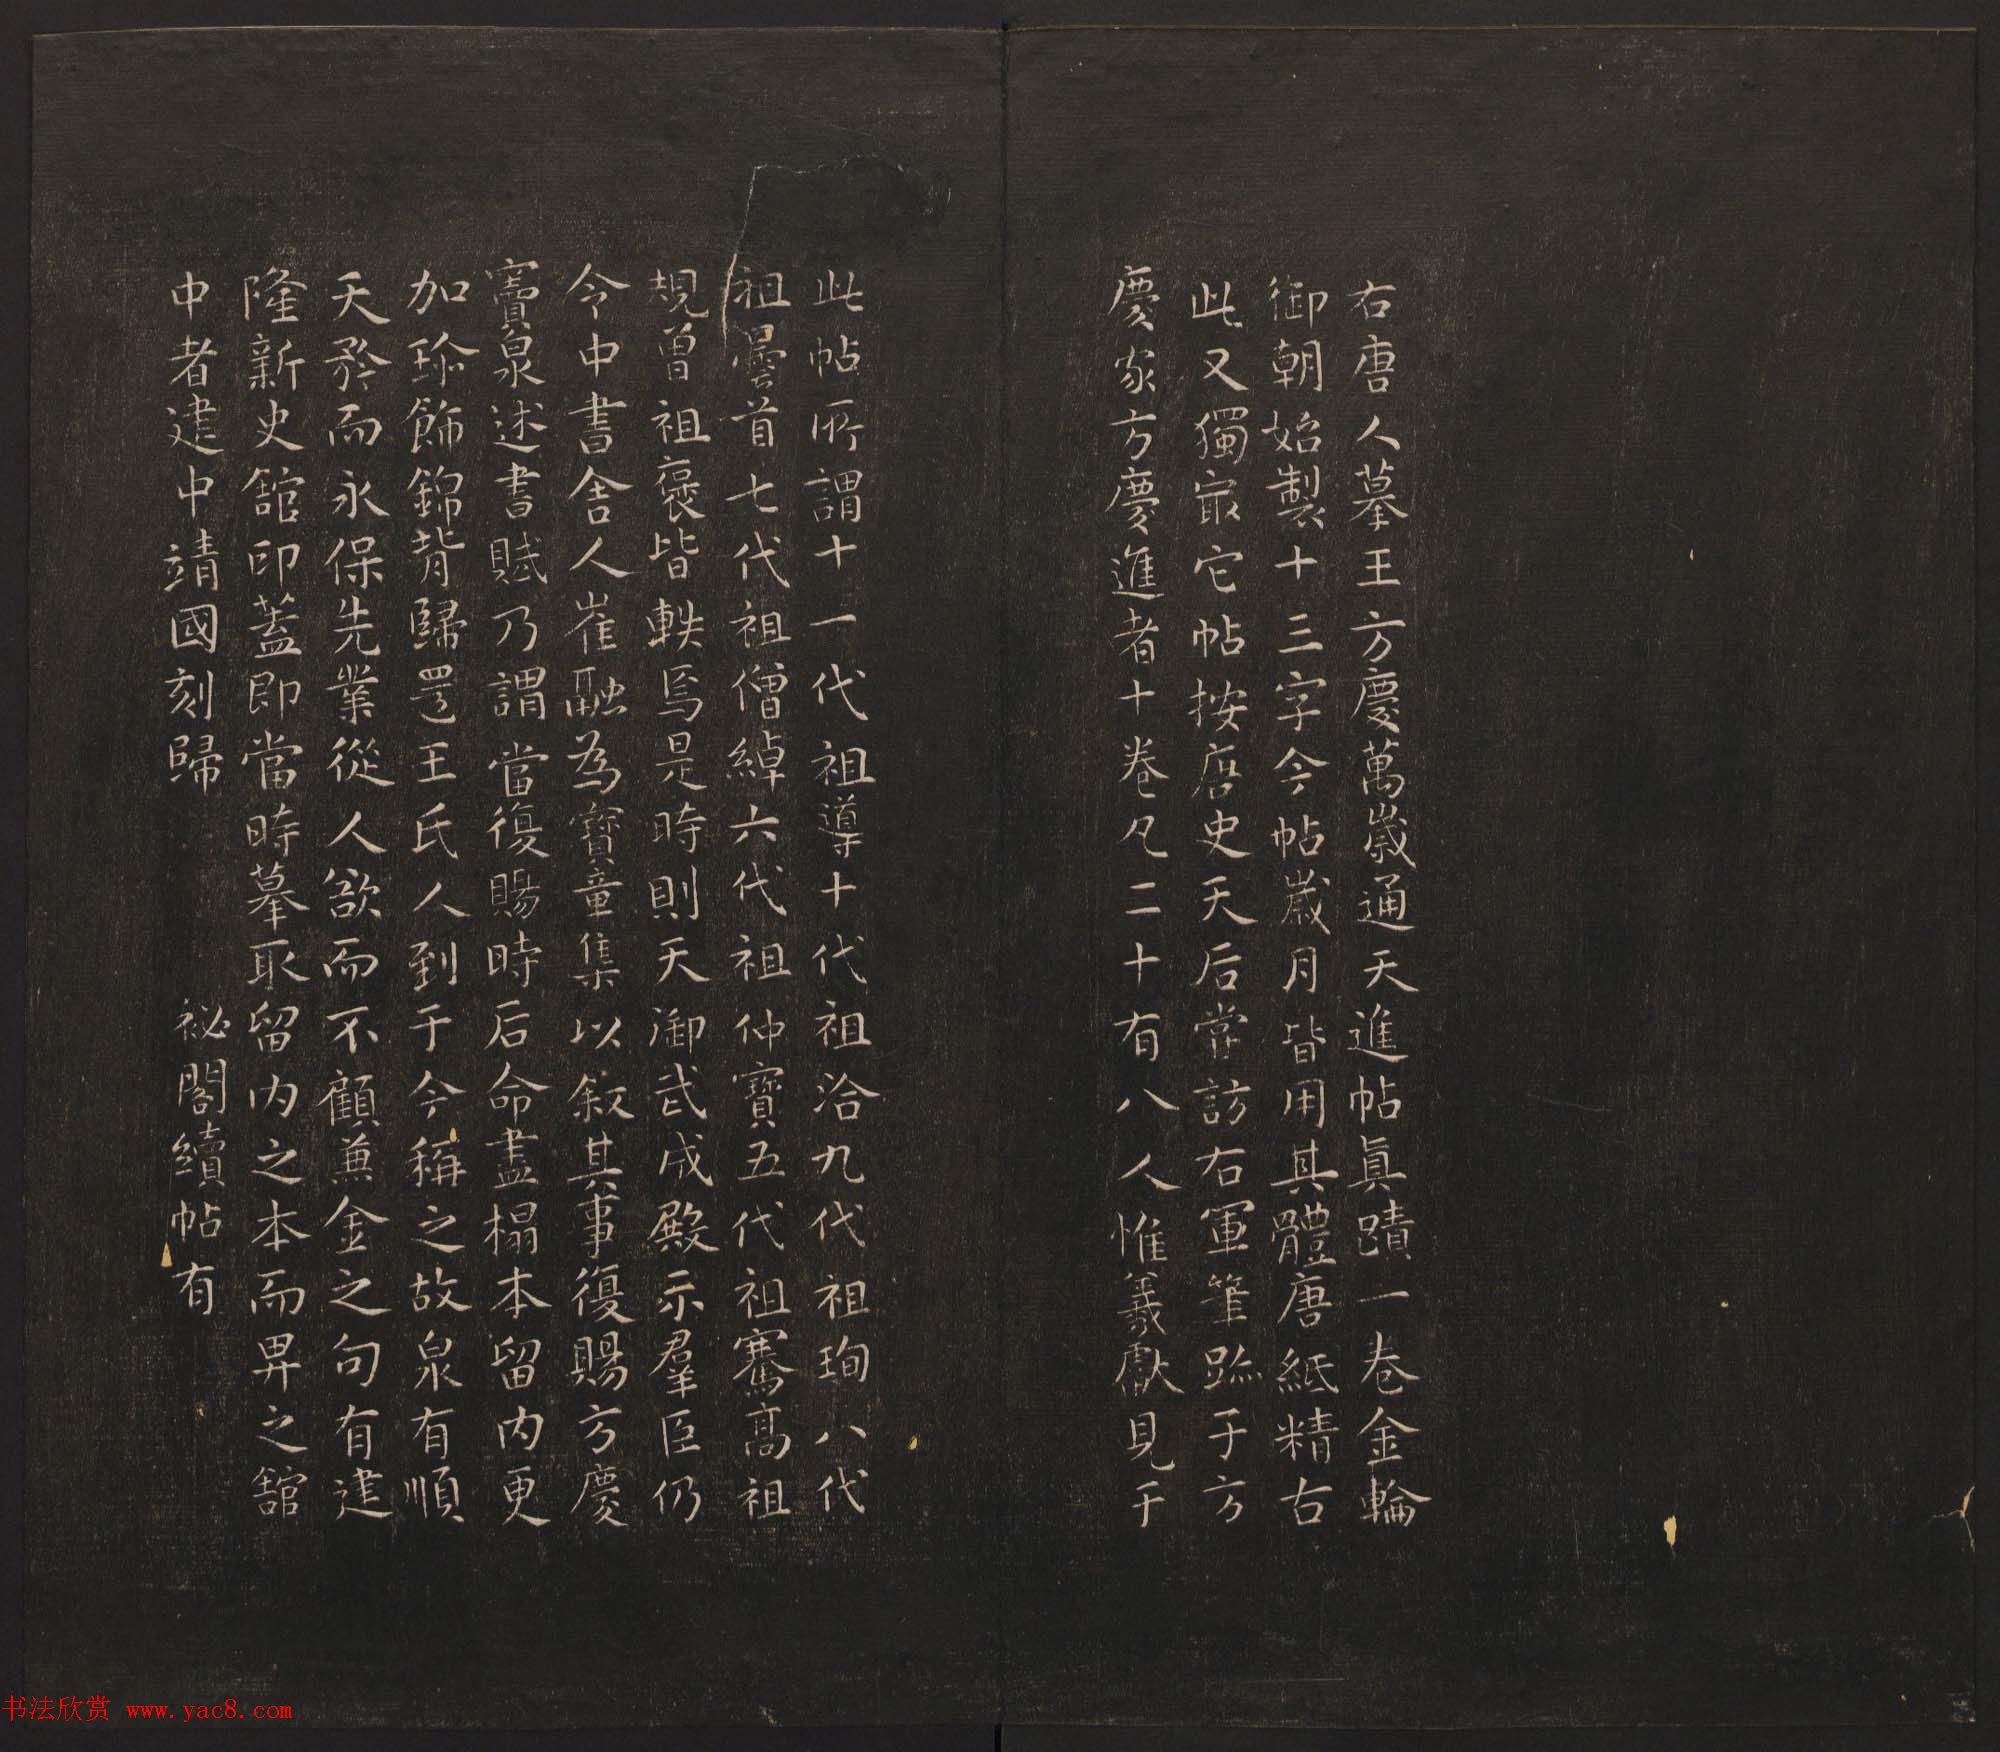 右唐人摹王方慶萬歲通天進帖眞蹟一卷金輪
御朝始製十三字今帖歲月皆用其體唐紙精古
此又獨冣它帖按唐史天后嘗訪右軍筆跡于方
慶家方慶進者十卷凡二十有八人惟羲獻見于
此帖所謂十一代祖導十代祖洽九代祖珣八代
祖曇首七代祖僧綽六代祖仲寶五代祖騫髙祖
規曾祖褒皆軼焉是時則天御武成殿示羣臣仍
令中書舍人崔融為寶章集以叙其事復賜方慶
竇泉述書賦乃謂當復賜時后命盡榻本留内更
加珎飾錦背歸㝵王氏人到于今稱之故泉有順
天矜而永保先業從人慾而不顧兼金之句有建
隆新史舘印蓋即當時摹取留内之本而畀之舘
中者建中靖國刻歸 祕閣續帖有
书法欣赏 www.yac8.com